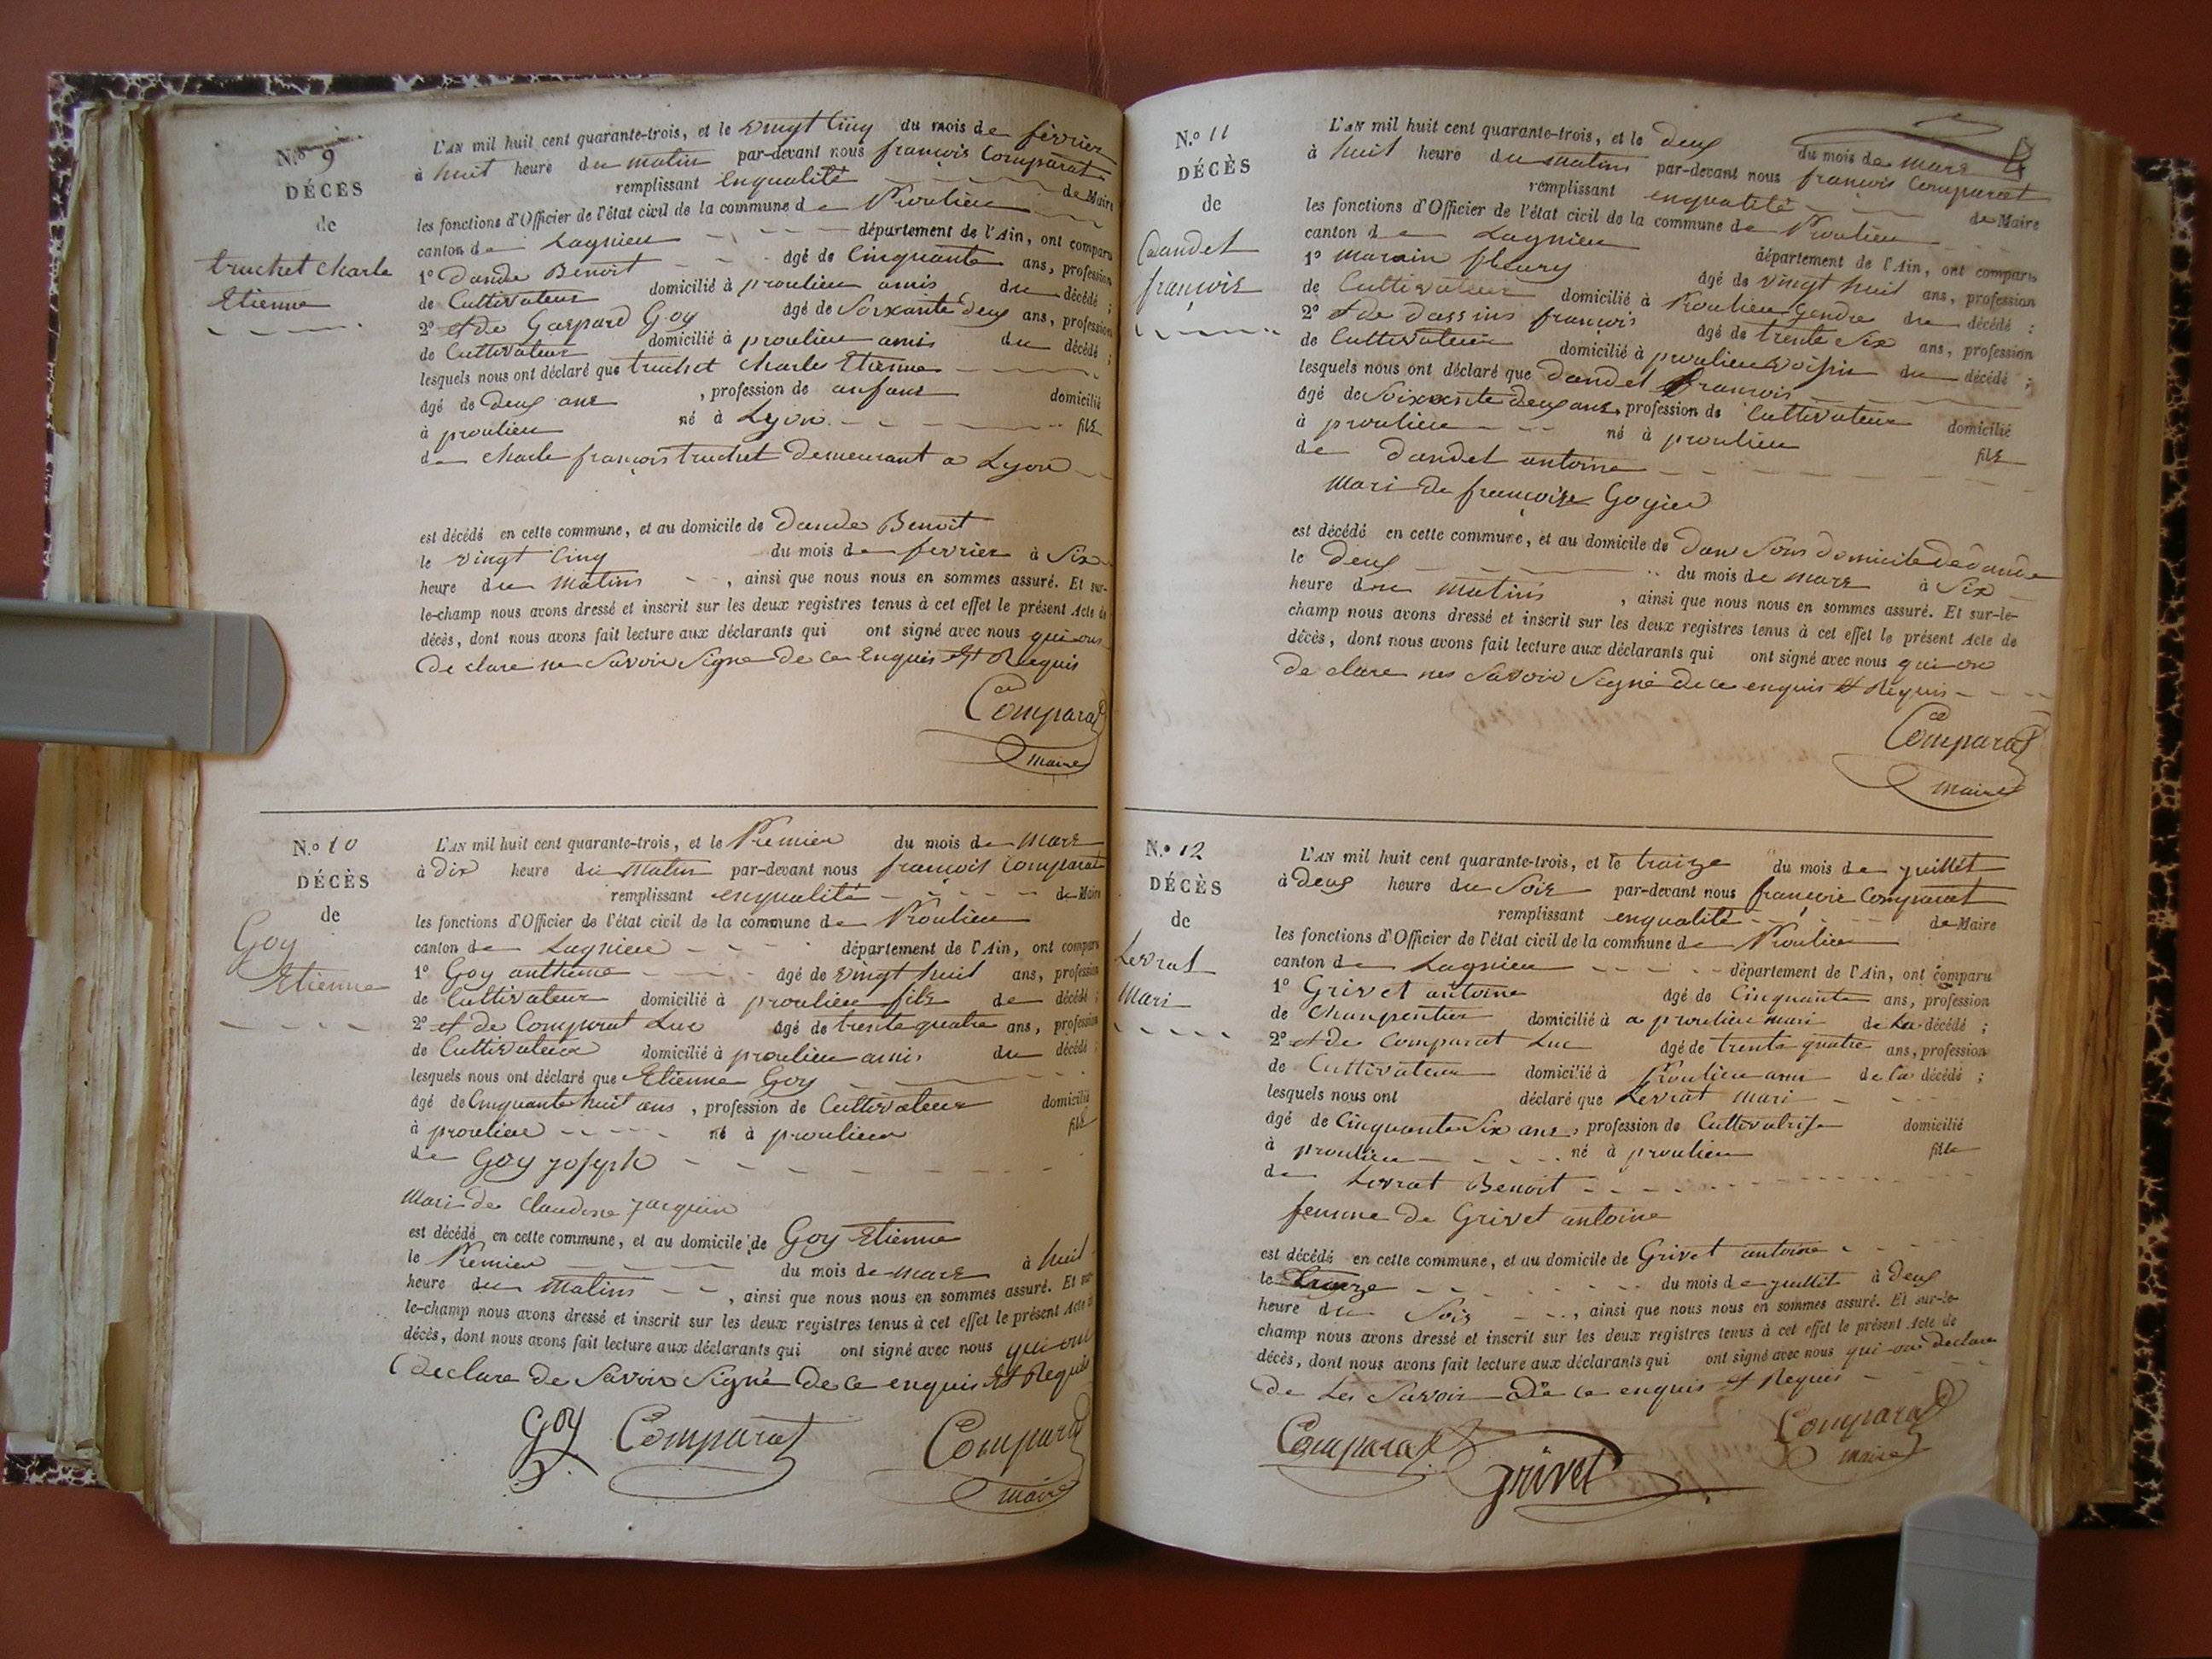 N.º 9
DÉCÈS
de
truchet charle
Etienne
L'AN mil huit cent quarante-trois, et le vingt cinq du mois de fevrier
à huit heure du matin par-devant nous françois Comparat
remplissant enqualité de Maire
les fonctions d'Officier de l'état civil de la commune de Proulieu
canton de Lagnieu département de l'Ain, ont comparu
1º dande Benoit âgé de Cinquante ans, profession
de Cultivateur domicilié à proulieu amis du décédé ;
2º et de Gaspard Goy âgé de Soixante deux ans, profession
de Cultivateur domicilié à proulieu amis du décédé ;
lesquels nous ont déclaré que truchet charles Etienne
âgé de deux ans , profession de anfant domicilié
à proulieu né à Lyon fils
de charle françois truchet demeurant a Lyon
est décédé en cette commune, et au domicile de dande Benoit
le vingt cinq du mois de fevrier à Six
heure du matins , ainsi que nous nous en sommes assuré. Et sur-
le-champ nous avons dressé et inscrit sur les deux registres tenus à cet effet le présent Acte de
décès, dont nous avons fait lecture aux déclarants qui ont signé avec nous qui on
de clare ne Savoir Signe de ce enquis et Requis
Comparat
maire
N.º 10
DÉCÈS
de
Goy
Etienne
L'AN mil huit cent quarante-trois, et le Premier du mois de mars
à dix heure du matin par-devant nous françois Comparat
remplissant enqualité de Maire
les fonctions d'Officier de l'état civil de la commune de Proulieu
canton de Lagnieu département de l'Ain, ont comparu
1º Goy anthime âgé de vingt huit ans, profession
de Cultivateur domicilié à proulieu fils de décédé ;
2º et de Comparat Luc âgé de trente quatre ans, profession
de Cultivateur domicilié à proulieu ami du décédé ;
lesquels nous ont déclaré que Etienne Goy
âgé de Cinquante huit ans , profession de Cultivateur domicilié
à proulieu né à proulieu fils
de Goy joseph
mari de Claudine jacquin
est décédé en cette commune, et au domicile de Goy Etienne
le Premier du mois de mars à huit
heure du matins , ainsi que nous nous en sommes assuré. Et sur-
le-champ nous avons dressé et inscrit sur les deux registres tenus à cet effet le présent Acte de
décès, dont nous avons fait lecture aux déclarants qui ont signé avec nous qui ont
declare de Savoir Signé de ce enquis et Requis
Goy Comparat Comparat
maire
N.º 11
DÉCÈS
de
dandet
françois
L'AN mil huit cent quarante-trois, et le deux du mois de mars
à huit heure du matins par-devant nous françois Comparat
remplissant enqualité de Maire
les fonctions d'Officier de l'état civil de la commune de Proulieu
canton de Lagnieu département de l'Ain, ont comparu
1º marain fleury âgé de vingt huit ans, profession
de Cultivateur domicilié à Proulieu Gendre du décédé ;
2º et de dassins françois âgé de trente Six ans, profession
de Cultivateur domicilié à proulieu voisin du décédé ;
lesquels nous ont déclaré que dandet francois
âgé de Soixante deux ans, profession de Cultivateur domicilié
à proulieu né à proulieu fils
de dandet antoine
mari de françoise
est décédé en cette commune, et au domicile de dan Sons domicile de dande
le deux du mois de mars à Six
heure du matins , ainsi que nous nous en sommes assuré. Et sur-le-
champ nous avons dressé et inscrit sur les deux registres tenus à cet effet le présent Acte de
décès, dont nous avons fait lecture aux déclarants qui ont signé avec nous qui on
de clare nes Savoir Signé de ce enquis et Requis
Comparat
maire
N.º 12
DÉCÈS
de
Levrat
Mari
L'AN mil huit cent quarante-trois, et le traize du mois de juillet
à deux heure du Soir par-devant nous françois Comparat
remplissant enqualité de Maire
les fonctions d'Officier de l'état civil de la commune de Proulieu
canton de Lagnieu département de l'Ain, ont comparu
1º Grivet antoine âgé de Cinquante ans, profession
de Charpentier domicilié à a proulieu mari de La décédé ;
2º et de Comparat Luc âgé de trente quatre ans, profession
de Cultivateur domicilié à Proulieu ami de la décédé ;
lesquels nous ont déclaré que Levrat mari
âgé de Cinquante Six ans, profession de Cultivatrise domicilié
à proulieu né à proulieu fille
de Levrat Benoit
femme de Grivet antoine
est décédé en cette commune, et au domicile de Grivet antoine
le traize du mois de juillet à deux
heure du Soir , ainsi que nous nous en sommes assuré. Et sur-le-
champ nous avons dressé et inscrit sur les deux registres tenus à cet effet le présent Acte de
décès, dont nous avons fait lecture aux déclarants qui ont signé avec nous qui on declare
de Les Savoir De ce enquis et Requis
Comparat Grivet Comparat
maire